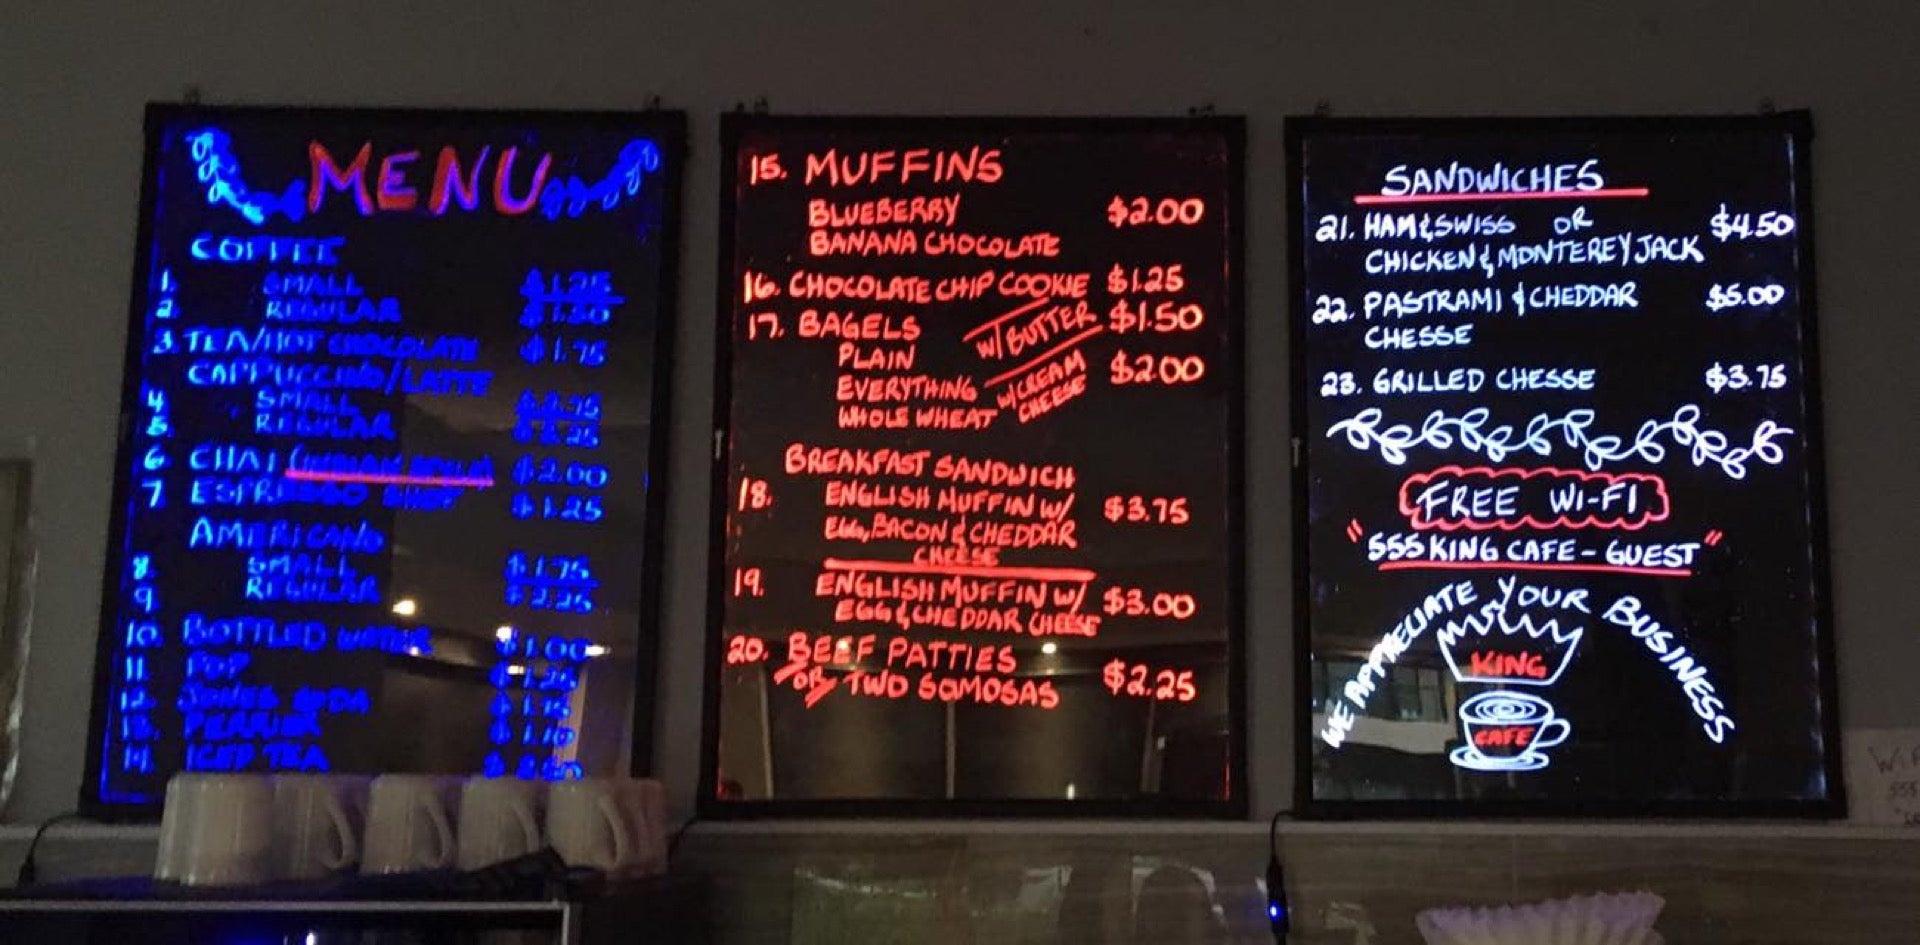 MENU
COFFEE
1. SMALL $1.25
2. REGULAR $1.50
3. TEA/HOT CHOCOLATE $1.75
CAPPUCCINO/LATTE
4 SMALL
5. REGULAR
6 CHAI $2.00
7 ESPRESSO SHOT $1.25
AMERICANO
8. SMALL $1.75
9 REGULAR $2.25
10. BOTTLED WATER $1.00
11. POP $1.25
12. JONES SODA
13. PERRIER
14. ICED TEA
15. MUFFINS
BLUEBERRY $2.00
BANANA CHOCOLATE
16. CHOCOLATE CHIP COOKIE $1.25
17. BAGELS W/BUTTER $1.50
PLAIN
EVERYTHING W/CREAM $2.00
WHOLE WHEAT CHEESE
BREAKFAST SANDWICH
18. ENGLISH MUFFIN W/ $3.75
EGG, BACON & CHEDDAR
CHEESE
19. ENGLISH MUFFIN W/ $3.00
EGG & CHEDDAR CHEESE
20. BEEF PATTIES
OR TWO SOMOSAS $2.25
SANDWICHES
21. HAM & SWISS OR $4.50
CHICKEN & MONTEREY JACK
22. PASTRAMI & CHEDDAR $5.00
CHESSE
23. GRILLED CHESSE $3.75
FREE WI-FI
"555 KING CAFE - GUEST"
WE APPRECIATE YOUR BUSINESS
KING
CAFE